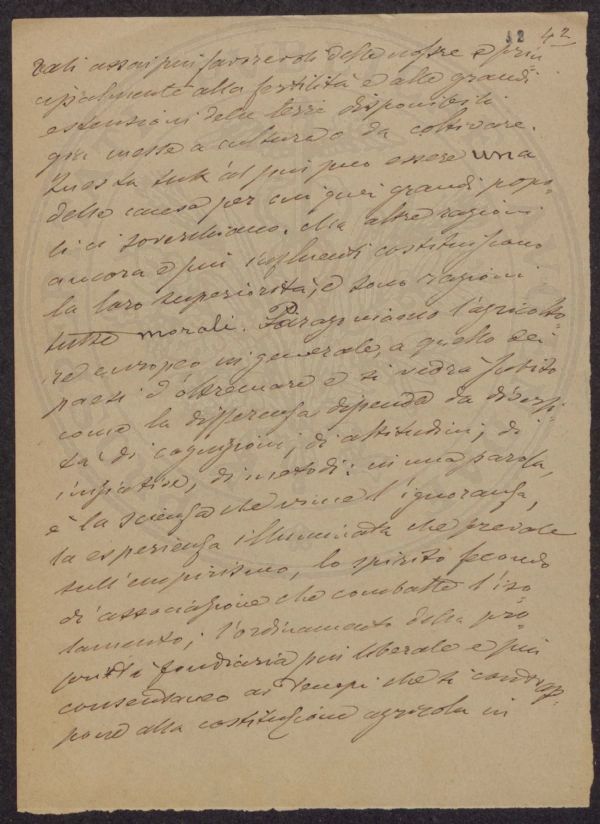 12 42
dali assai più favorevoli delle nostre e prin-
cipalmente alla fertilità e alle grandi
estensioni delle terre disponibili
già messe a cultura o da coltivare.
Questa tutt'al più può essere una
delle cause per cui quei grandi popo-
li ci soverchiano. Ma altre ragioni
ancora e più influenti costituiscono
la loro superiorità, e sono ragioni
tutte morali. Paragoniamo l'agricolto-
re europeo in generale, a quello dei
paesi d'oltremare e si vedrà subito
come la differenza dipenda da diversi-
tà di cognizioni, di attitudini, di
iniziative, di metodi: in una parola,
è la scienza che vince l'ignoranza,
la esperienza illuminata che prevale
sull'empirismo, lo spirito fecondo
di associazione che combatte l'iso-
lamento; l'ordinamento della pro-
prietà fondiaria più liberale e più
consentaneo ai tempi che si contrap-
pone alla costituzione agricola in